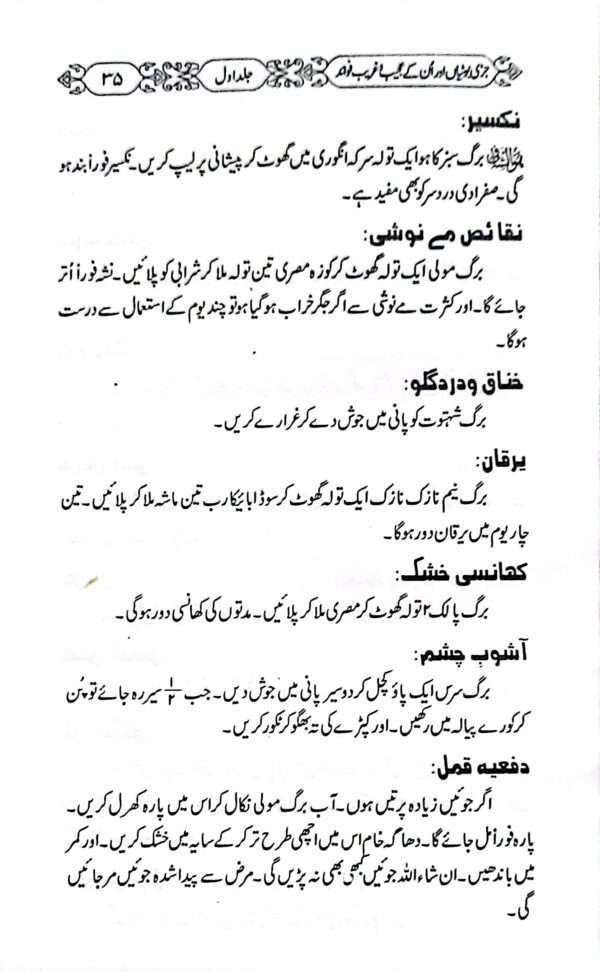 جڑی بوٹیاں اور اُن کے عجیب و غریب فوائد
جلد اول
۳۵
نکسیر:
برگ سبز کاہو ایک تولہ سرکہ انگوری میں گھوٹ کر پیشانی پر لیپ کریں۔ نکسیر فوراً بند ہو
گی۔ صفراوی درد سر کو بھی مفید ہے۔
نقائص مے نوشی:
برگ مولی ایک تولہ گھوٹ کر کوزہ مصری تین تولہ ملا کر شرابی کو پلائیں۔ نشہ فوراً اُتر
جائے گا۔ اور کثرت مے نوشی سے اگر جگر خراب ہو گیا ہو تو چند یوم کے استعمال سے درست
ہوگا۔
خناق و درد گلو:
برگ شہتوت کو پانی میں جوش دے کر غرارے کریں۔
یرقان:
برگ نیم نازک نازک ایک تولہ گھوٹ کر سوڈا بائیکارب تین ماشہ ملا کر پلائیں۔ تین
چار یوم میں یرقان دور ہوگا۔
کھانسی خشک:
برگ پالک ۲ تولہ گھوٹ کر مصری ملا کر پلائیں۔ مدتوں کی کھانسی دور ہوگی۔
آشوب چشم:
برگ سرس ایک پاؤ کچل کر دو سیر پانی میں جوش دیں۔ جب ۱/۲ سیر رہ جائے تو پُن
کر کورے پیالہ میں رکھیں۔ اور کپڑے کی تہ بھگو کر ٹکور کریں۔
دفعیہ قمل:
اگر جوئیں زیادہ پڑتیں ہوں۔ آب برگ مولی نکال کر اس میں پارہ کھرل کریں۔
پارہ فوراً مل جائے گا۔ دھاگہ خام اس میں اچھی طرح تر کر کے سایہ میں خشک کریں۔ اور کمر
میں باندھیں۔ ان شاء اللہ جوئیں کبھی بھی نہ پڑیں گی۔ مرض سے پیدا شدہ جوئیں مر جائیں
گی۔